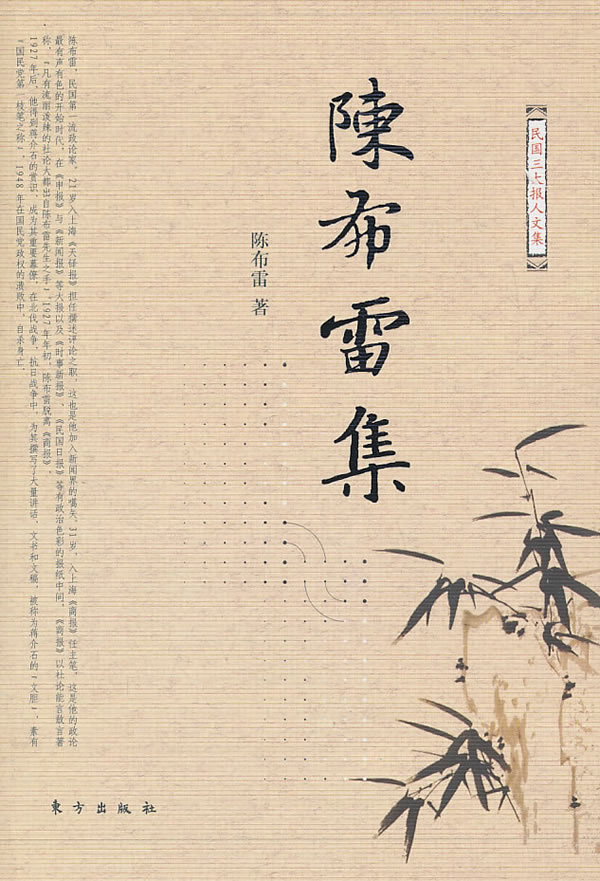 民国三大报人文集
陳布雷集
陈布雷 著
陈布雷，民国第一流政论家。21岁入上海《天铎报》担任撰述评论之职，这也是他加入新闻界的嚆矢。31岁，入上海《商报》任主笔，这是他的政论
最有声有色的开始时代。在《申报》与《新闻报》等大报以及《时事新报》、《民国日报》等有政治色彩的报纸中间，《商报》以社论能言敢言著
称，“凡有流丽泼辣的社论大都出自陈布雷先生之手”。1927年年初，陈布雷脱离《商报》。
1927年后，他得到蒋介石的赏识，成为其重要幕僚，在北伐战争、抗日战争中，为其撰写了大量讲话、文书和文稿，被称为蒋介石的“文胆”，素有
“国民党第一枝笔之称”。1948年在国民党政权的溃败中，自杀身亡。
東方出版社